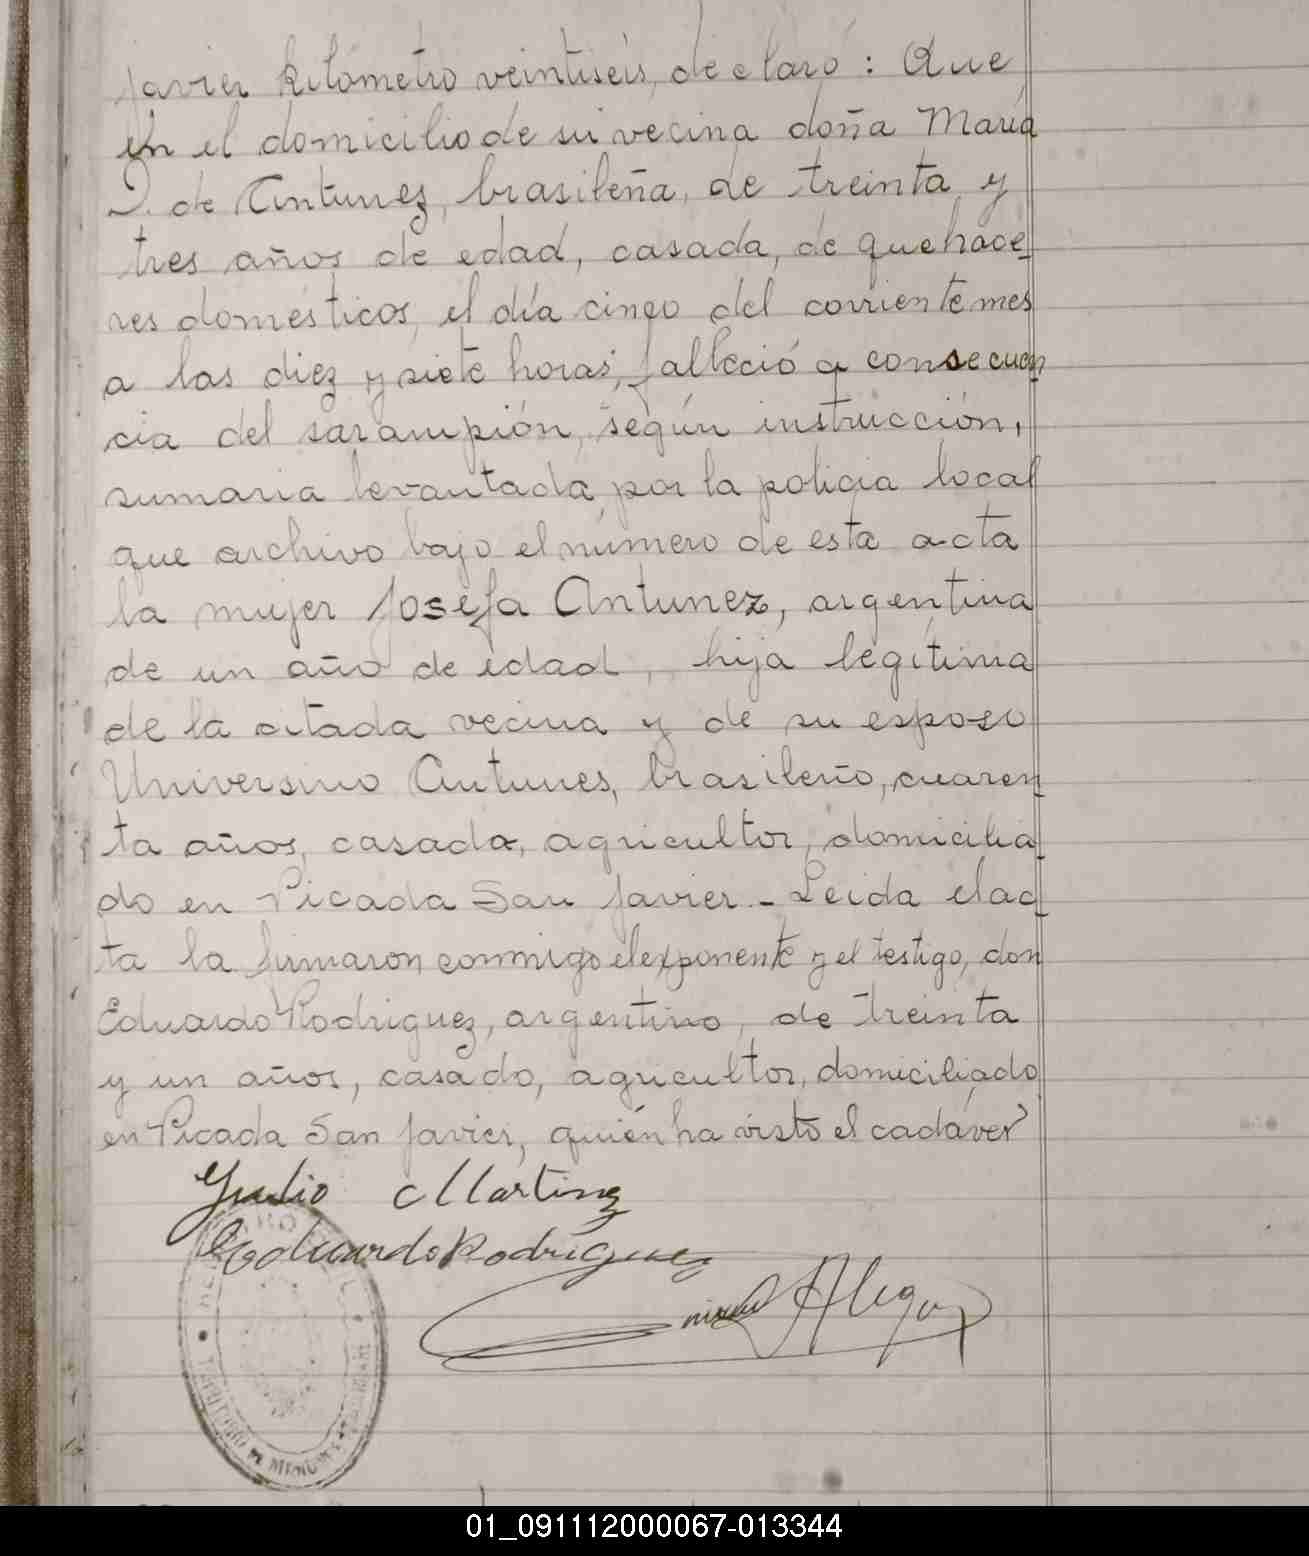 Javier kilómetro veintiseis, declaró: Que
en el domicilio de su vecina doña María
de Antunez, brasileña, de treinta y
tres años de edad, casada, de quehace_
res domésticos, el día cinco del corriente mes
a las diez y siete horas, falleció a consecuen
cia del sarampión, según instrucción,
sumaria levantada por la policia local
que archivo bajo el número de esta acta
la mujer Josefa Antunez, argentina
de un año de edad, hija legítima
de la citada vecina y de su esposo
Universino Antunes, brasileño, cuaren_
ta años, casada, agricultor, domicilia_
do en Picada San Javier_ Leida el ac_
ta la firmaron conmigo el exponente y el testigo, don
Eduardo Rodriguez, argentino, de treinta
y un años, casado, agricultor, domiciliado
en Picada San Javier, quién ha visto el cadáver
Julio Martinez
Eduardo Rodríguez
TERRITORIO DE MISIONES
01_091112000067-013344